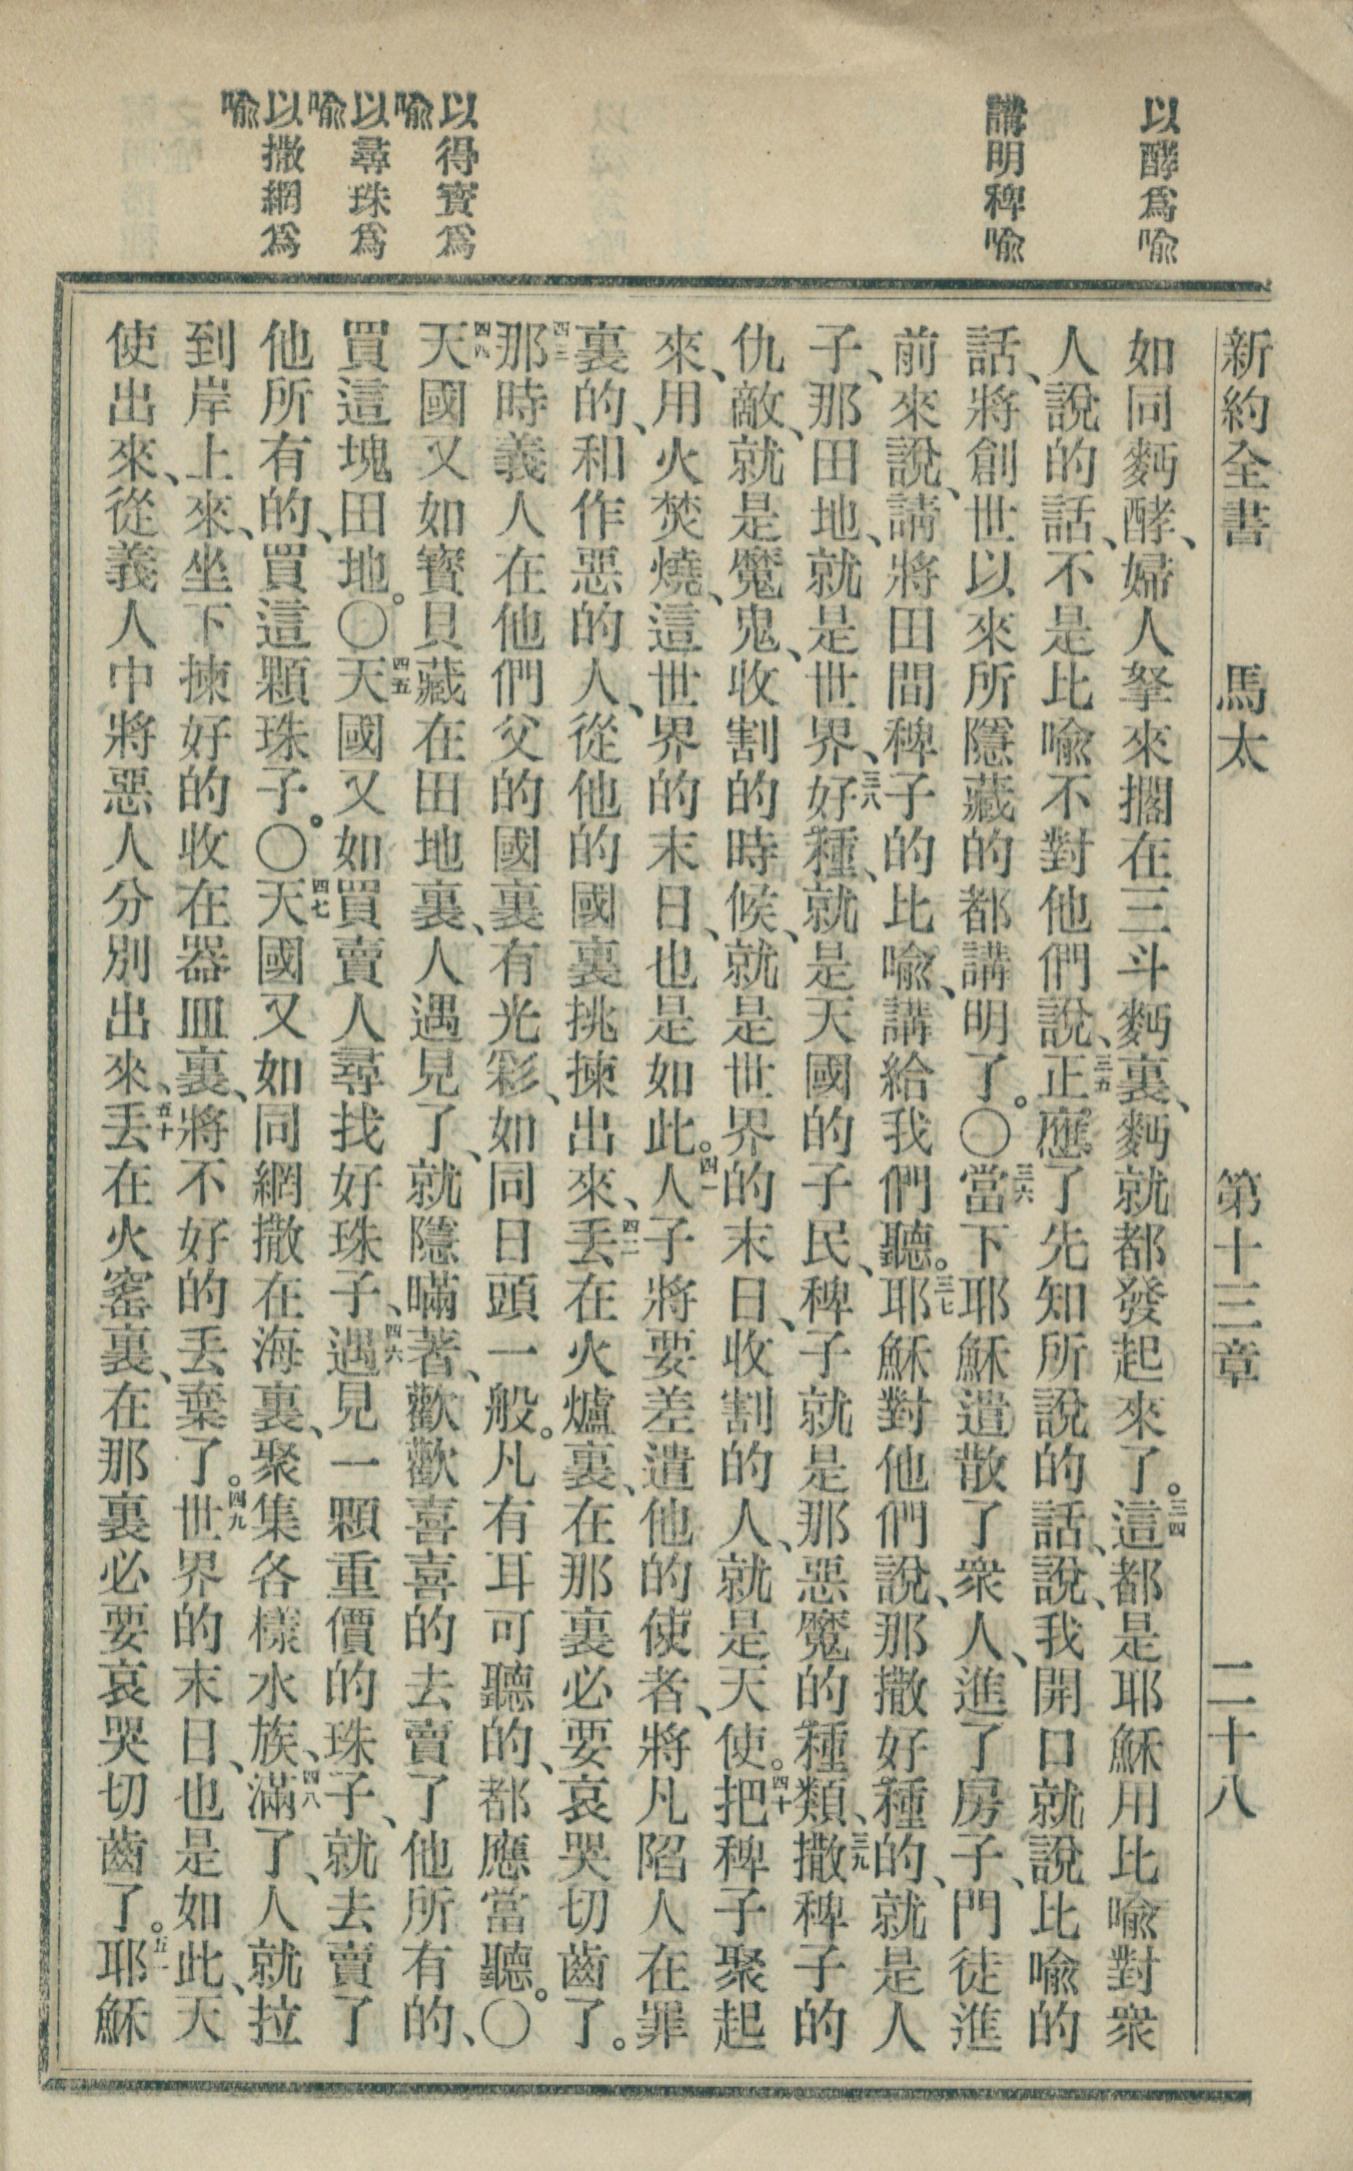 以酵爲喻
講明稗喻
以得寶爲
喻
以尋珠爲
喻
以撒網爲
喻
新約全書　馬太　第十三章　二十八
如同麪酵、婦人拏來擱在三斗麪裏、麪就都發起來了。三四這都是耶穌用比喻對衆
人說的話、不是比喻不對他們說、三五正應了先知所說的話、說、我開口就說比喻的
話、將創世以來所隱藏的都講明了。〇三六當下耶穌遣散了衆人、進了房子、門徒進
前來說、請將田間稗子的比喻、講給我們聽。三七耶穌對他們說、那撒好種的、就是人
子、那田地、就是世界、三八好種、就是天國的子民、稗子就是那惡魔的種類、三九撒稗子的
仇敵、就是魔鬼、收割的時候、就是世界的末日、收割的人、就是天使。四十把稗子聚起
來、用火焚燒、這世界的末日、也是如此。四一人子將要差遣他的使者、將凡陷人在罪
裏的、和作惡的人、從他的國裏挑揀出來、四二丟在火爐裏、在那裏必要哀哭切齒了。
四三那時義人在他們父的國裏、有光彩、如同日頭一般。凡有耳可聽的、都應當聽。〇
四四天國又如寶貝藏在田地裏、人遇見了、就隱瞞著、歡歡喜喜的去賣了他所有的、
買這塊田地。〇四五天國又如買賣人尋找好珠子、四六遇見一顆重價的珠子、就去賣了
他所有的、買這顆珠子。〇四七天國又如同網撒在海裏、聚集各樣水族、四八滿了、人就拉
到岸上來、坐下揀好的收在器皿裏、將不好的丟棄了。四九世界的末日、也是如此、天
使出來、從義人中將惡人分別出來、五十丟在火窰裏、在那裏必要哀哭切齒了。五一耶穌